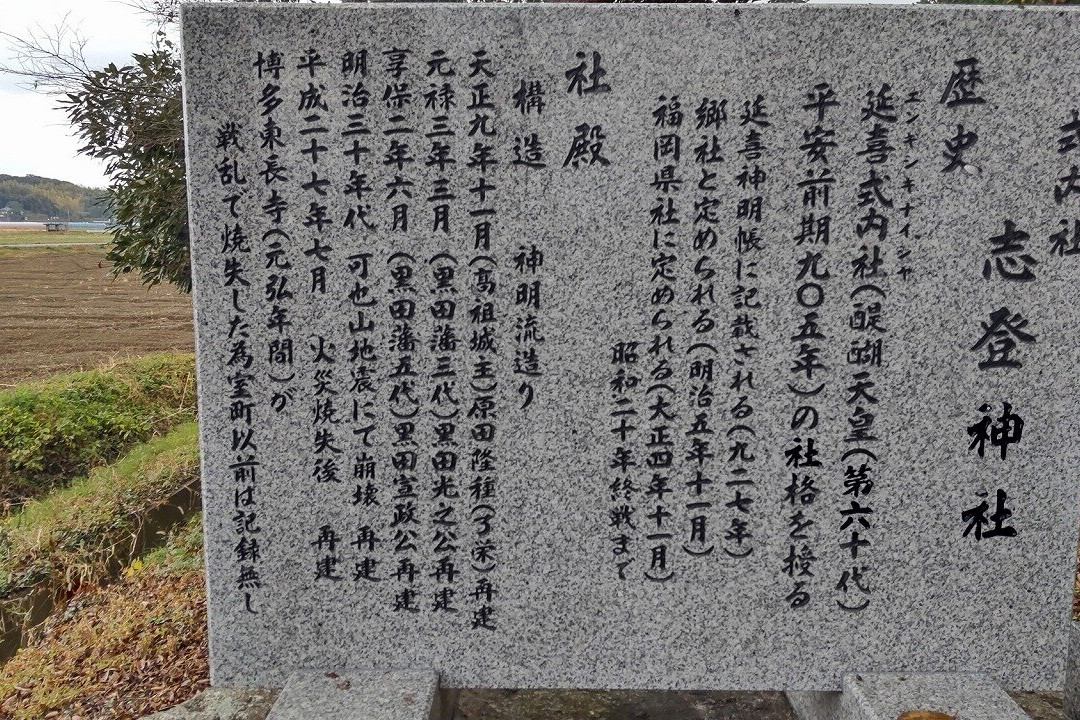 式内社
志登神社
歴史
エンギシキナイシヤ
延喜式内社(醍醐天皇(第六十代)
平安前期九〇五年)の社格を授る
延喜神明帳に記載される(九二七年)
郷社と定められる(明治五年十一月)
福岡県社に定められる(大正四年十一月)
昭和二十年終戦まで
社殿
構造 神明流造り
天正九年十一月(高祖城主)原田隆種(了栄)再建
元禄三年三月(黒田藩三代)黒田光之公再建
享保二年六月(黒田藩五代)黒田宣政公再建
明治三十年代 可也山地震にて崩壊 再建
平成二十七年七月 火災焼失後 再建
博多東長寺(元弘年間)が
戦乱で焼失した為室町以前は記録無し